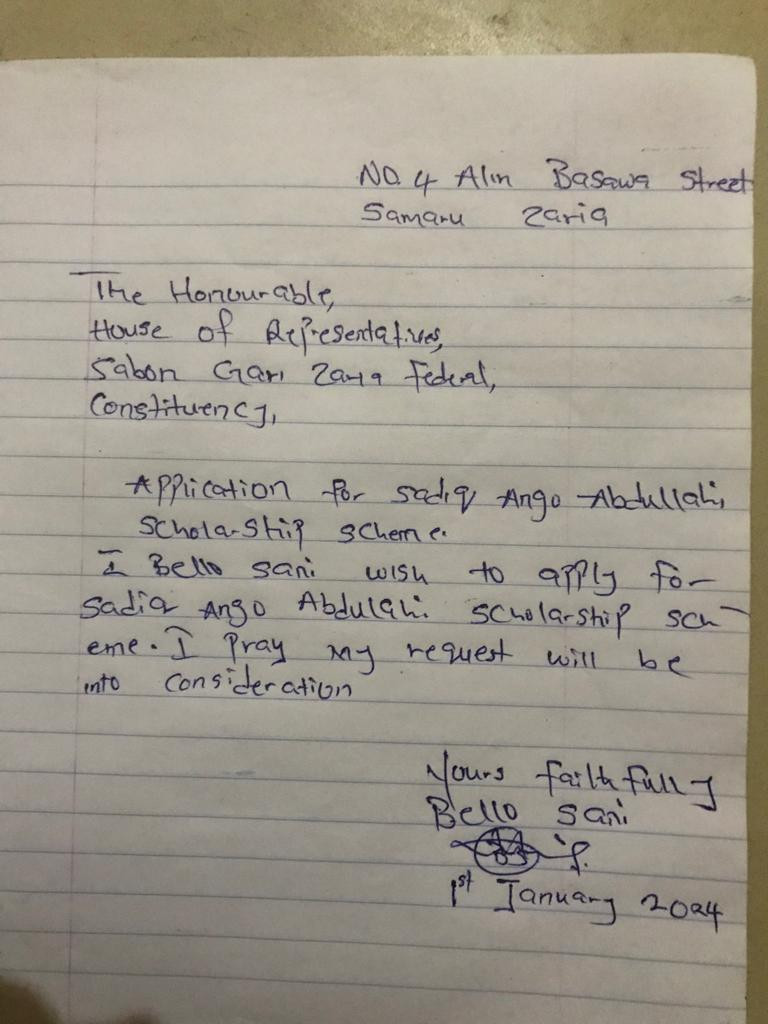 NO. 4 Alin Basawa Street
Samaru Zaria
The Honourable,
House of Representatives,
Sabon Gari Zaria Federal,
Constituency,
Application for Sadiq Ango Abdullahi,
Scholarship scheme.
I Bello Sani wish to apply for
Sadiq Ango Abdulahi Scholarship sch-
eme. I Pray my request will be
into consideration
Yours faithfully
Bello Sani
1st January 2024